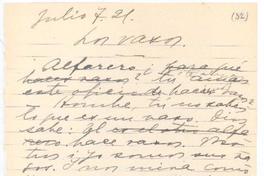 Julio 7. 21. (32)
Los vasos.
Alfarero ¿para qué
haces vasos? tú amas
este oficio de hacer vasos?
— Hombre, tú no sabes
lo que es un vaso. Dios
sabe: Él es el otro alfa
rero hace vasos.
tros y yo somos sus va
sos. I nos mira como